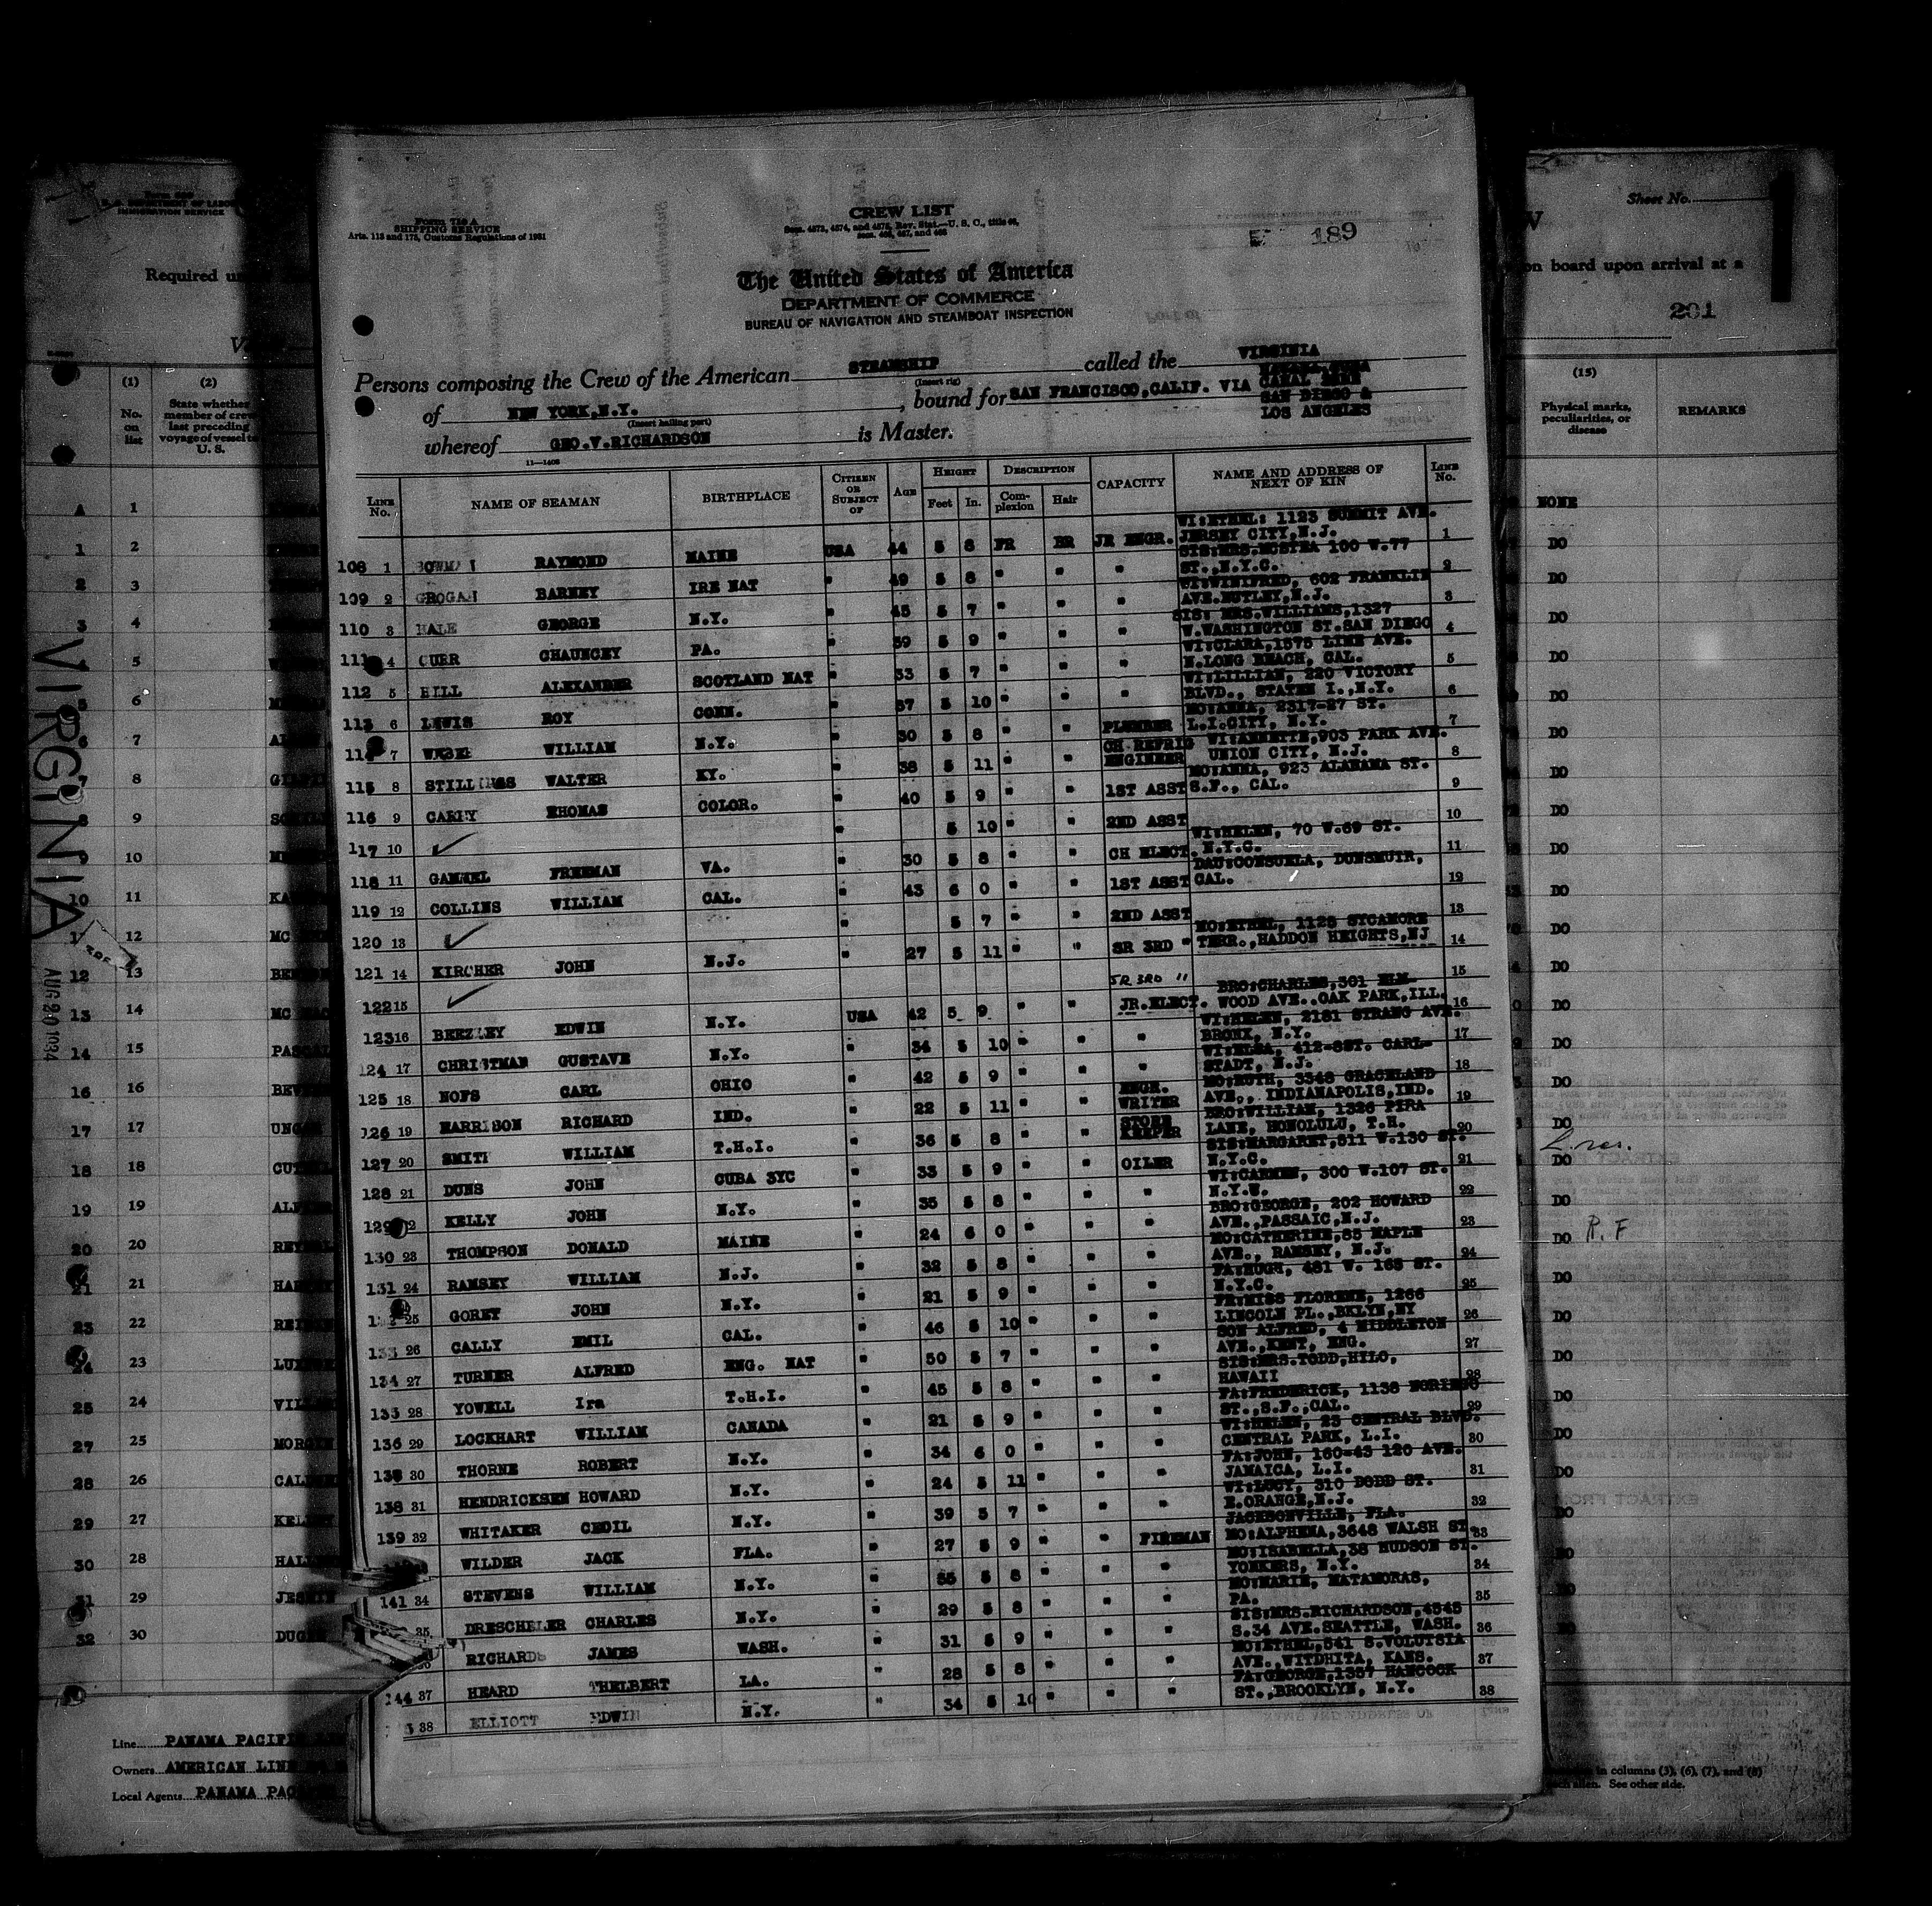 Form 710 A
SHIPPING SERVICE
Arts. 113 and 175, Customs Regulations of 1931
CREW LIST
Secs. 4573, 4574, and 4575, Rev. Stat.—U. S. C., title 46,
secs. 466, 467, and 468
189
The United States of America
DEPARTMENT OF COMMERCE
BUREAU OF NAVIGATION AND STEAMBOAT INSPECTION
Persons composing the Crew of the American STEAMSHIP called the VIRGINIA
(Insert rig)
of NEW YORK, N.Y. , bound for SAN FRANCISCO, CALIF. VIA CANAL ZONE
(Insert hailing port)
SAN DIEGO &
LOS ANGELES
whereof GEO.V.RICHARDSON is Master.
11—1408
LINE No. NAME OF SEAMAN BIRTHPLACE CITIZEN OR SUBJECT OF AGE HEIGHT Feet In. DESCRIPTION Complexion Hair CAPACITY NAME AND ADDRESS OF NEXT OF KIN LINE No.
108 1 RAYMOND MAINE USA 44 5 8 FR BR JR ENGR. WI:ETHEL: 1123 SUMMIT AVE. JERSEY CITY,N.J. 1
109 2 GROGAN BARNEY IRE NAT " 49 5 8 " " " 100 W.77 ST.,N.Y.C. 2
110 3 HALE GEORGE N.Y. " 45 5 7 " " " WI:WINIFRED, 602 FRANKLIN AVE.NUTLEY,N.J. 3
111 4 CHAUNCEY PA. " 39 5 9 " " " SIS: MRS.WILLIAMS,1327 W.WASHINGTON ST.SAN DIEGO 4
112 5 HILL ALEXANDER SCOTLAND NAT " 33 5 7 " " " WI:CLARA,1575 LIME AVE. N.LONG BEACH, CAL. 5
113 6 LEWIS ROY CONN. " 37 5 10 " " " WI:LILLIAN, 220 VICTORY BLVD., STATEN I.,N.Y. 6
114 7 WILLIAM N.Y. " 30 5 8 " " PLUMBER MO:ANNA, 2317-27 ST. L.I.CITY, N.Y. 7
115 8 STILLINGS WALTER KY. " 38 5 11 " " CH REFRIG ENGINEER WI:ANNETTE,903 PARK AVE. UNION CITY, N.J. 8
116 9 CAREY THOMAS COLOR. " 40 5 9 " " 1ST ASST MO:ANNA, 923 ALABAMA ST. S.F., CAL. 9
117 10 " 5 10 " " 2ND ASST 10
118 11 GAMMEL FREEMAN VA. " 30 5 8 " " CH ELECT. WI:HELEN, 70 W.69 ST. N.Y.C. 11
119 12 COLLINS WILLIAM CAL. " 43 6 0 " " 1ST ASST DAU:CONSUELA, DUNSMUIR, CAL. 12
120 13 " 5 7 " " 2ND ASST 13
121 14 KIRCHER JOHN N.J. " 27 5 11 " " SR 3RD " MO:ETHEL, 1125 SYCAMORE TERR.,HADDON HEIGHTS,NJ 14
122 15 JR 3RD " 15
123 16 BEEZLEY EDWIN N.Y. USA 42 5 9 " " JR.ELECT. BRO:CHARLES,301 ELM- WOOD AVE..OAK PARK,ILL. 16
124 17 CHRISTMAN GUSTAVE N.Y. " 34 5 10 " " " WI:HELEN, 2181 STRANG AVE. BRONX, N.Y. 17
125 18 HOFS CARL OHIO " 42 5 9 " " " WI:ELSA, 412-8ST. CARL- STADT, N.J. 18
126 19 HARRISON RICHARD IND. " 22 5 11 " " ENGR. WRITER MO:RUTH, 3348 GRACELAND AVE., INDIANAPOLIS,IND. 19
127 20 SMITH WILLIAM T.H.I. " 36 5 8 " " STORE KEEPER BRO:WILLIAM, 1326 LANE, HONOLULU, T.H. 20
128 21 DUNS JOHN CUBA 3YC " 33 5 9 " " OILER SIS:MARGARET,511 W.130 ST. N.Y.C. 21
129 22 KELLY JOHN N.Y. " 35 5 8 " " " WI:CARMEN, 300 W.107 ST. 22
130 23 THOMPSON DONALD MAINE " 24 6 0 " " " BRO:GEORGE, 202 HOWARD AVE.,PASSAIC,N.J. 23
131 24 RAMSEY WILLIAM N.J. " 32 5 8 " " " MO:CATHERINE,85 MAPLE AVE., RAMSEY, N.J. 24
25 GOREY JOHN N.Y. " 21 5 9 " " " FA:HUGH, 481 W. 165 ST. N.Y.C. 25
133 26 CALLY EMIL CAL. " 46 5 10 " " " FR:MISS FLORENE, 1266 LINCOLN PL.,BKLYN,NY 26
134 27 TURNER ALFRED ENG. NAT " 50 5 7 " " " SON ALFRED, 4 MIDDLETON AVE.,KENT, ENG. 27
135 28 YOWELL Ira T.H.I. " 45 5 8 " " " SIS:MRS.TODD,HILO, HAWAII 28
136 29 LOCKHART WILLIAM CANADA " 21 5 9 " " " FA:FREDERICK, 1138 NORIEGO ST.,S.F.,CAL. 29
138 30 THORNE ROBERT N.Y. " 34 6 0 " " " WI:HELEN, 23 CENTRAL BLVD. CENTRAL PARK, L.I. 30
138 31 HENDRICKSEN HOWARD N.Y. " 24 5 11 " " " FA:JOHN, 160-43 120 AVE. JAMAICA, L.I. 31
139 32 WHITAKER CECIL N.Y. " 39 5 7 " " " WI:LUCY, 310 DODD ST. E.ORANGE,N.J. 32
WILDER JACK FLA. " 27 5 9 " " FIREMAN JACKSONVILLE, FLA. MO:ALPHENA,3648 WALSH ST. 33
141 34 STEVENS WILLIAM N.Y. " 35 5 8 " " " MO:ISABELLA,38 HUDSON ST. YONKERS, N.Y. 34
35 DRESCHELER CHARLES N.Y. " 29 5 8 " " " MO:MARIE, MATAMORAS, PA. 35
36 RICHARDS JAMES WASH. " 31 5 9 " " " SIS:MRS.RICHARDSON,4545 S.34 AVE.SEATTLE, WASH. 36
144 37 HEARD THELBERT LA. " 28 5 8 " " " MO:ETHEL,541 S.VOLUTSIA AVE.,WITDHITA, KANS. 37
38 ELLIOTT EDWIN N.Y. " 34 5 10 " " " FA:GEORGE,1357 HANCOCK ST.,BROOKLYN, N.Y. 38
U. S. DEPARTMENT OF LABOR
IMMIGRATION SERVICE
Required
(1) (2)
No. on list
State whether member of crew last preceding voyage of vessel to U. S.
VIRGINIA
AUG 20 1934
Line PANAMA PACIFIC
Owners AMERICAN LINE
Local Agents PANAMA PAC
Sheet No. 1
on board upon arrival at a
201
(15)
Physical marks, peculiarities, or disease
REMARKS
NONE
DO
R. F
in columns (5), (6), (7), and (8)
each alien. See other side.